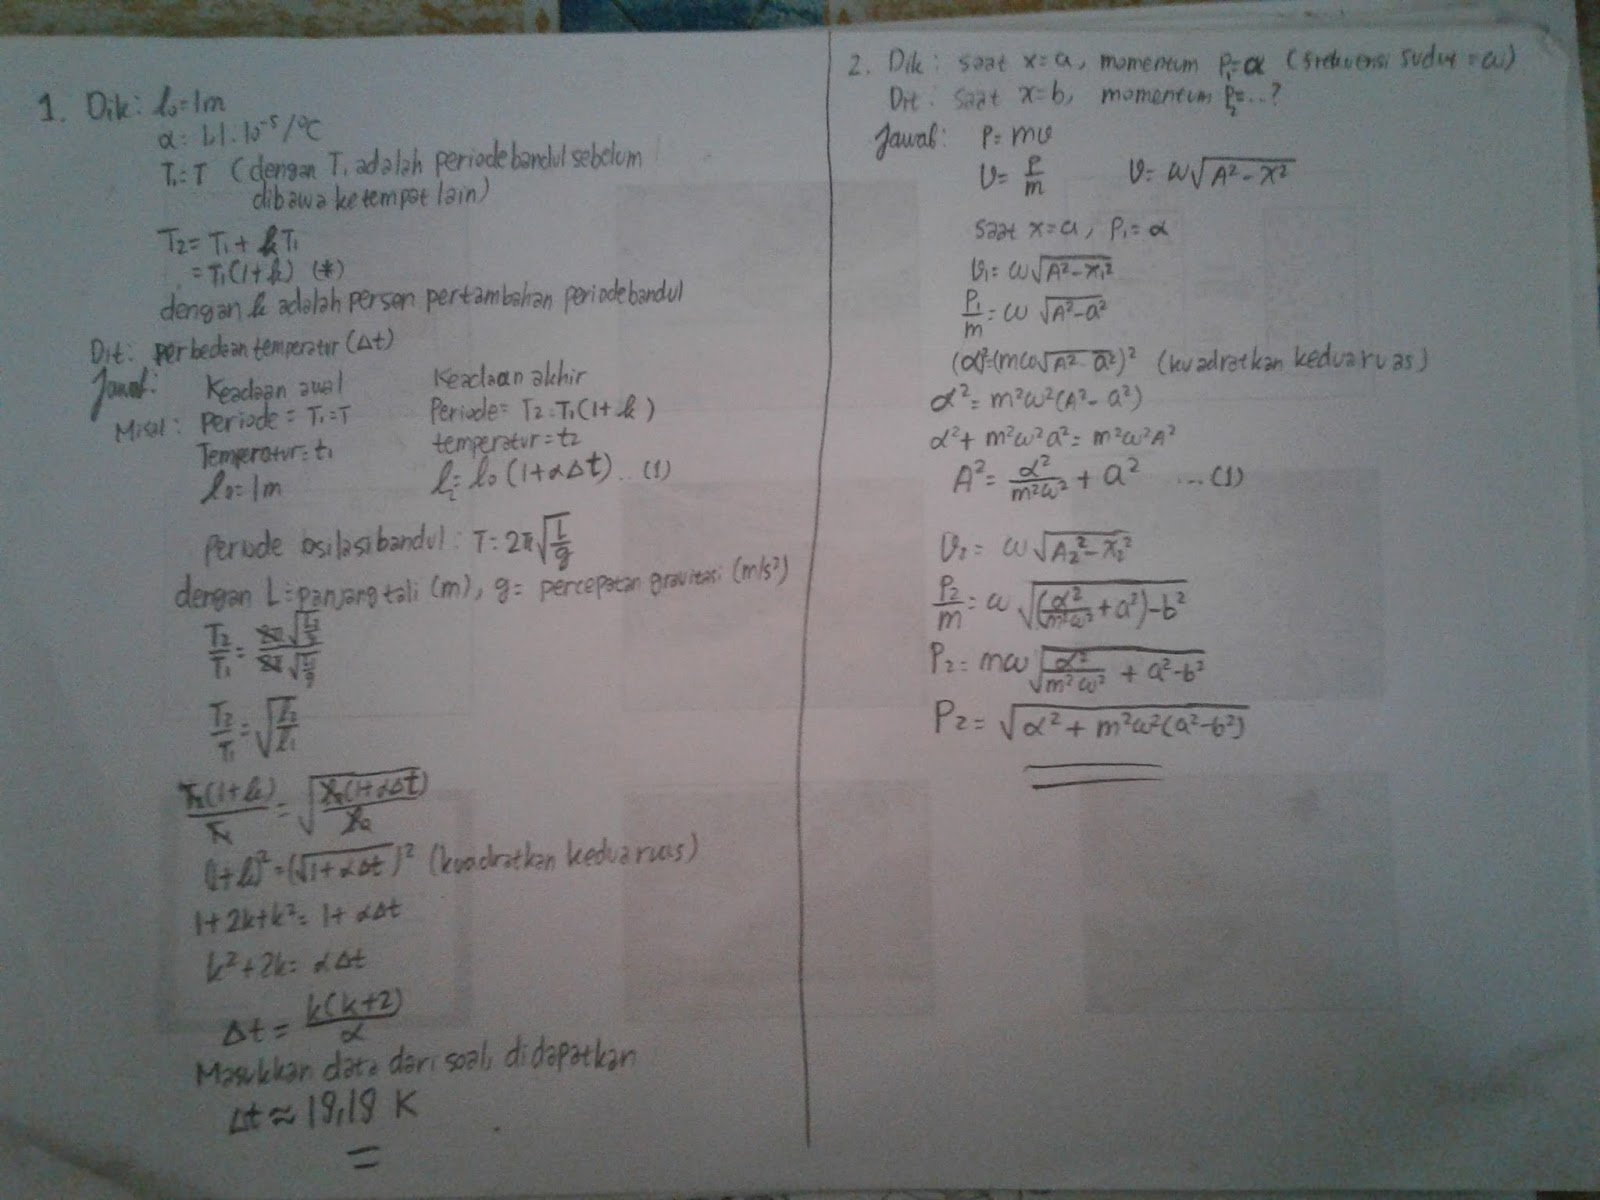 1. Dik: l₀=1m
α=1,1.10⁻⁵/°C
T₁=T (dengan T₁ adalah periode bandul sebelum
dibawa ke tempat lain)
T₂=T₁+kT₁
=T₁(1+k) (*)
dengan k adalah persen pertambahan periode bandul
Dit: perbedaan temperatur (Δt)
Jawab: Keadaan awal Keadaan akhir
Misal: Periode = T₁=T Periode= T₂=T₁(1+k)
Temperatur=t₁ temperatur=t₂
l₀=1m l₂=l₀(1+αΔt)...(1)
Periode osilasi bandul: T=2π√(L/g)
dengan L=panjang tali (m), g= percepatan gravitasi (m/s²)
T₂/T₁=2π√(l₂/g)/2π√(l₁/g)
T₂/T₁=√(l₂/l₁)
T₁(1+k)/T₁=√(l₀(1+αΔt)/l₀)
(1+k)²=(√(1+αΔt))² (kuadratkan kedua ruas)
1+2k+k²=1+αΔt
k²+2k=αΔt
Δt=k(k+2)/α
Masukkan data dari soal, didapatkan
Δt≈18,18 K
=
2. Dik: saat x=a, momentum P₁=α (frekuensi sudut=ω)
Dit: saat x=b, momentum P₂=...?
Jawab: P=mv
v=P/m v=ω√(A²-x²)
saat x=a, P₁=α
v₁=ω√(A²-x₁²)
P₁/m=ω√(A²-a²)
(α)²=(mω√(A²-a²))² (kuadratkan kedua ruas)
α²=m²ω²(A²-a²)
α²+m²ω²a²=m²ω²A²
A²=α²/m²ω²+a² ...(1)
v₂=ω√(A₂²-x₂²)
P₂/m=ω√((α²/m²ω²+a²)-b²)
P₂=mω√(α²/m²ω²+a²-b²)
P₂=√(α²+m²ω²(a²-b²))